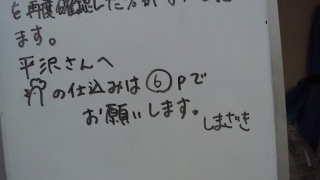 を再度確認した方が
ます。
平沢さんへ
の仕込みは⑥Pで
お願いします。
しまざき